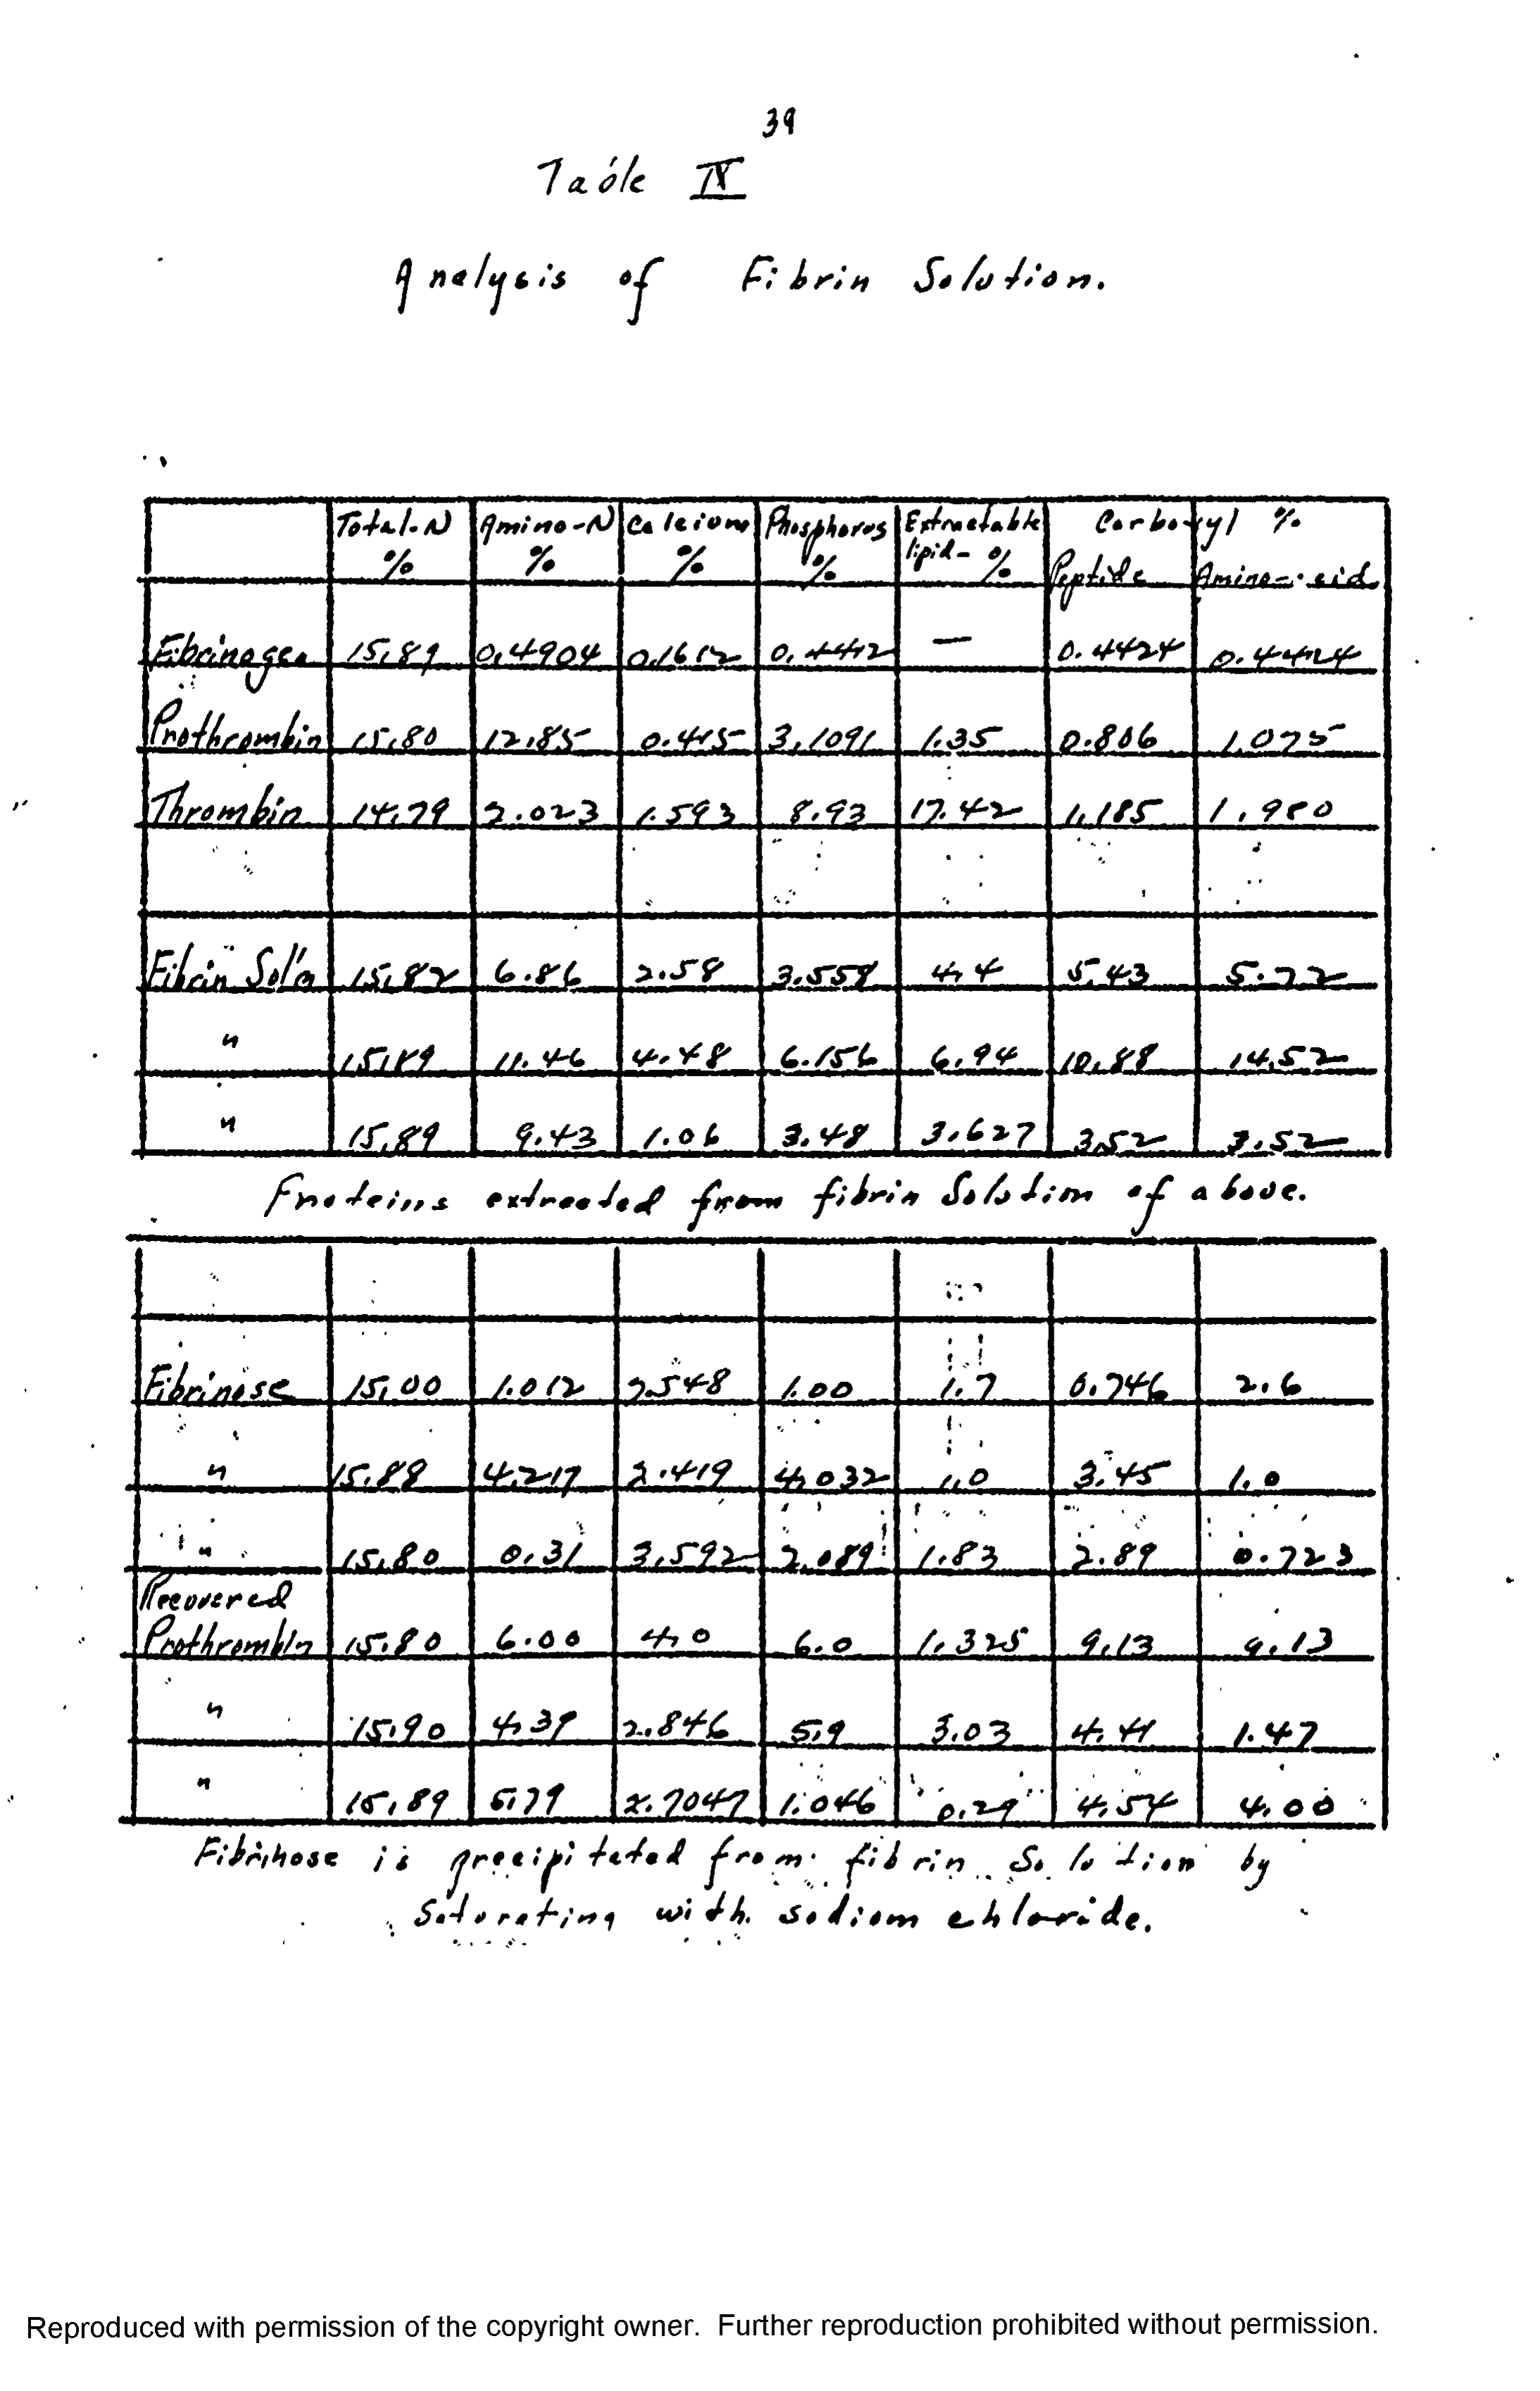 39
Table IV
Analysis of Fibrin Solution.
Total-N % Amino-N % Calcium % Phosphorus % Extractable lipid- % Carboxyl %
Peptide Amino-acid
Fibrinogen 15.89 0.4904 0.1612 0.4412 — 0.4424 0.4424
Prothrombin 15.80 12.85 0.415 3.1091 1.35 0.806 1.075
Thrombin 14.79 2.023 1.593 8.93 17.42 1.185 1.980
Fibrin Sol'n 15.82 6.86 2.58 3.558 4.4 5.43 5.72
" 15.89 11.46 4.48 6.156 6.94 10.88 14.52
" 15.89 9.43 1.06 3.48 3.627 3.52 3.52
Proteins extracted from fibrin Solution of above.
Fibrinose 15.00 1.012 2.548 1.00 1.7 0.746 2.6
" 15.88 4.217 2.419 4.032 1.0 3.45 1.0
" 15.80 0.31 3.592 2.089 1.83 2.89 0.723
Recovered
Prothrombin 15.80 6.00 4.0 6.0 1.325 9.13 9.13
" 15.90 4.39 2.846 5.9 3.03 4.41 1.47
" 15.89 5.79 2.7047 1.046 0.29 4.54 4.00
Fibrinose is precipitated from fibrin Solution by
Saturating with sodium chloride.
Reproduced with permission of the copyright owner. Further reproduction prohibited without permission.